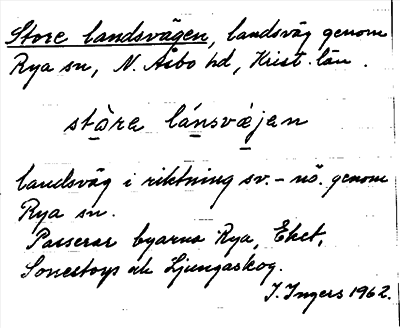 Store landsvägen, landsväg genom
Rya sn, N. Åsbo hd, Krist. län.
stòra lánsvæjan
landsväg i riktning sv. – nö. genom
Rya sn.
Passerar byarna Rya, Eket,
Sonestorp och Ljungaskog.
I. Ingers 1962.